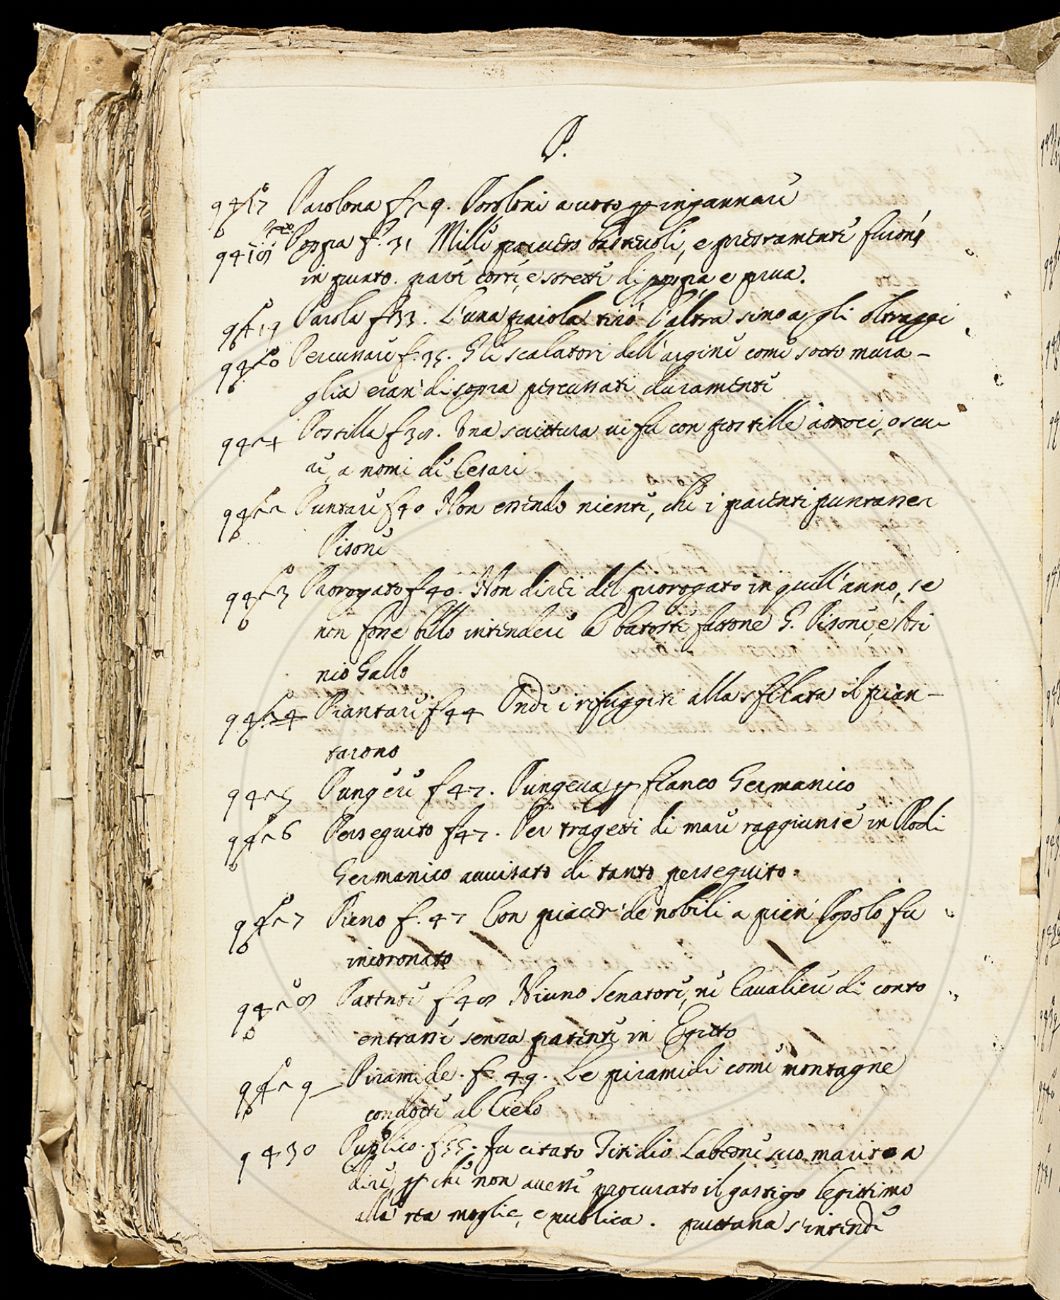 P.
9417 Parolona f. 9. Paroloni a uoto p ingannare
9418 Poppa f. 31 Mille poppe e prestamente furono
in punto. parte corti, e stretti di poppa e prua.
9419 Parola f. 33. L'una parola tirò l'altra sino a gli oltraggi
9420 Percuotere f. 35. Gli scalatori dell'argine come sotto mura-
glia eran di sopra percossati duramente
9421 Postilla f. 38. Una scrittura ui fu con postille atroci, o scu-
re, a nomi de Cesari
9422 Puntare f. 40 Non essendo niente, che i parenti puntasser
Pisone
9423 Prorogato f. 40. Non direi del prorogato in quell'anno, se
non fosse bello intendere le batoste G. Pisone, e Asi
nio Gallo
9424 Piantare f. 44 Onde i rifuggiti alla sfilata il pian-
tarono
9425 Pungere f. 47. Pungeua p fianco Germanico
9426 Perseguito f. 47. Per tragetti di mare raggiunse in Rodi
Germanico auuisato di tanto perseguito.
9427 Pieno f. 47 Con piacer de nobili a pien Popolo fu
incoronato
9428 Patente f. 48 Niuno Senatore, ne Caualiere di conto
entrasse senza patente in Egitto
9429 Piramide. f. 49. Le piramidi come montagne
condotte al Cielo
9430 Publico. f. 55. Fu citato Titidio Labeone suo marito a
dire p che non auesse procurato il gastigo legittimo
alla rea moglie, e publica. puttana s'intende